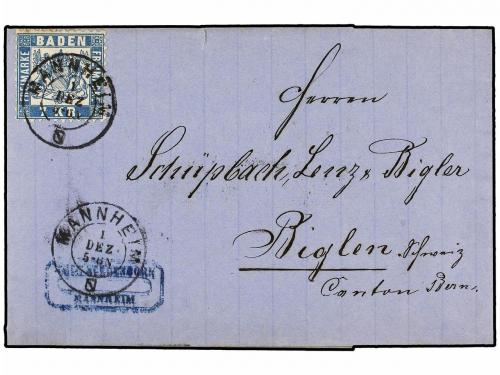 BADEN
FREIMARKE
MANNHEIM
1
DEZ
Herren
Schüpbach, Lenz & Bigler
Biglen, Schweiz
Canton Bern.
MANNHEIM
1
DEZ
5-6N
MANNHEIM